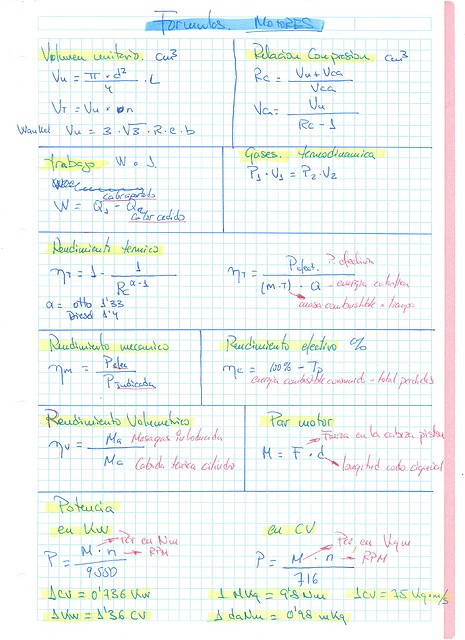 Formulas. MOTORES
Volumen unitario. cm³
Vu = π · d² / 4 · L
VT = Vu · n
Wankel Vu = 3 · √3 · R · e · b
Relacion Compresion cm³
Rc = Vu + Vca / Vca
Vca = Vu / Rc - 1
trabajo W = J.
calor aportado
W = Q1 - Q2
calor cedido
Gases. termodinamica
P1 · V1 = P2 · V2
Rendimiento termico
ηT = 1 - 1 / Rc^α-1
α = otto 1'33
Diesel 1'4
P. efectiva
ηT = P efect. / (m·T) · Q - energia calorifica
masa combustible - tiempo
Rendimiento mecanico
ηm = P efec / P indicada
Rendimiento efectivo %
ηe = 100% - Tp
energia combustible consumido - total perdidas
Rendimiento Volumetrico
ηv = Ma Masa gas introducida / Ma Cabida teorica cilindro
Par motor
Fuerza en la cabeza piston
M = F · d
longitud codo cigueñal
Potencia
en Kw
Par en Nm
P = M · n / 9550 RPM
1 CV = 0'736 Kw
1 Kw = 1'36 CV
en CV
Par en Kgm
P = M · n / 716 RPM
1 MKg = 9'8 Nm 1CV = 75 Kg·m/s
1 daNm = 0'98 mKg